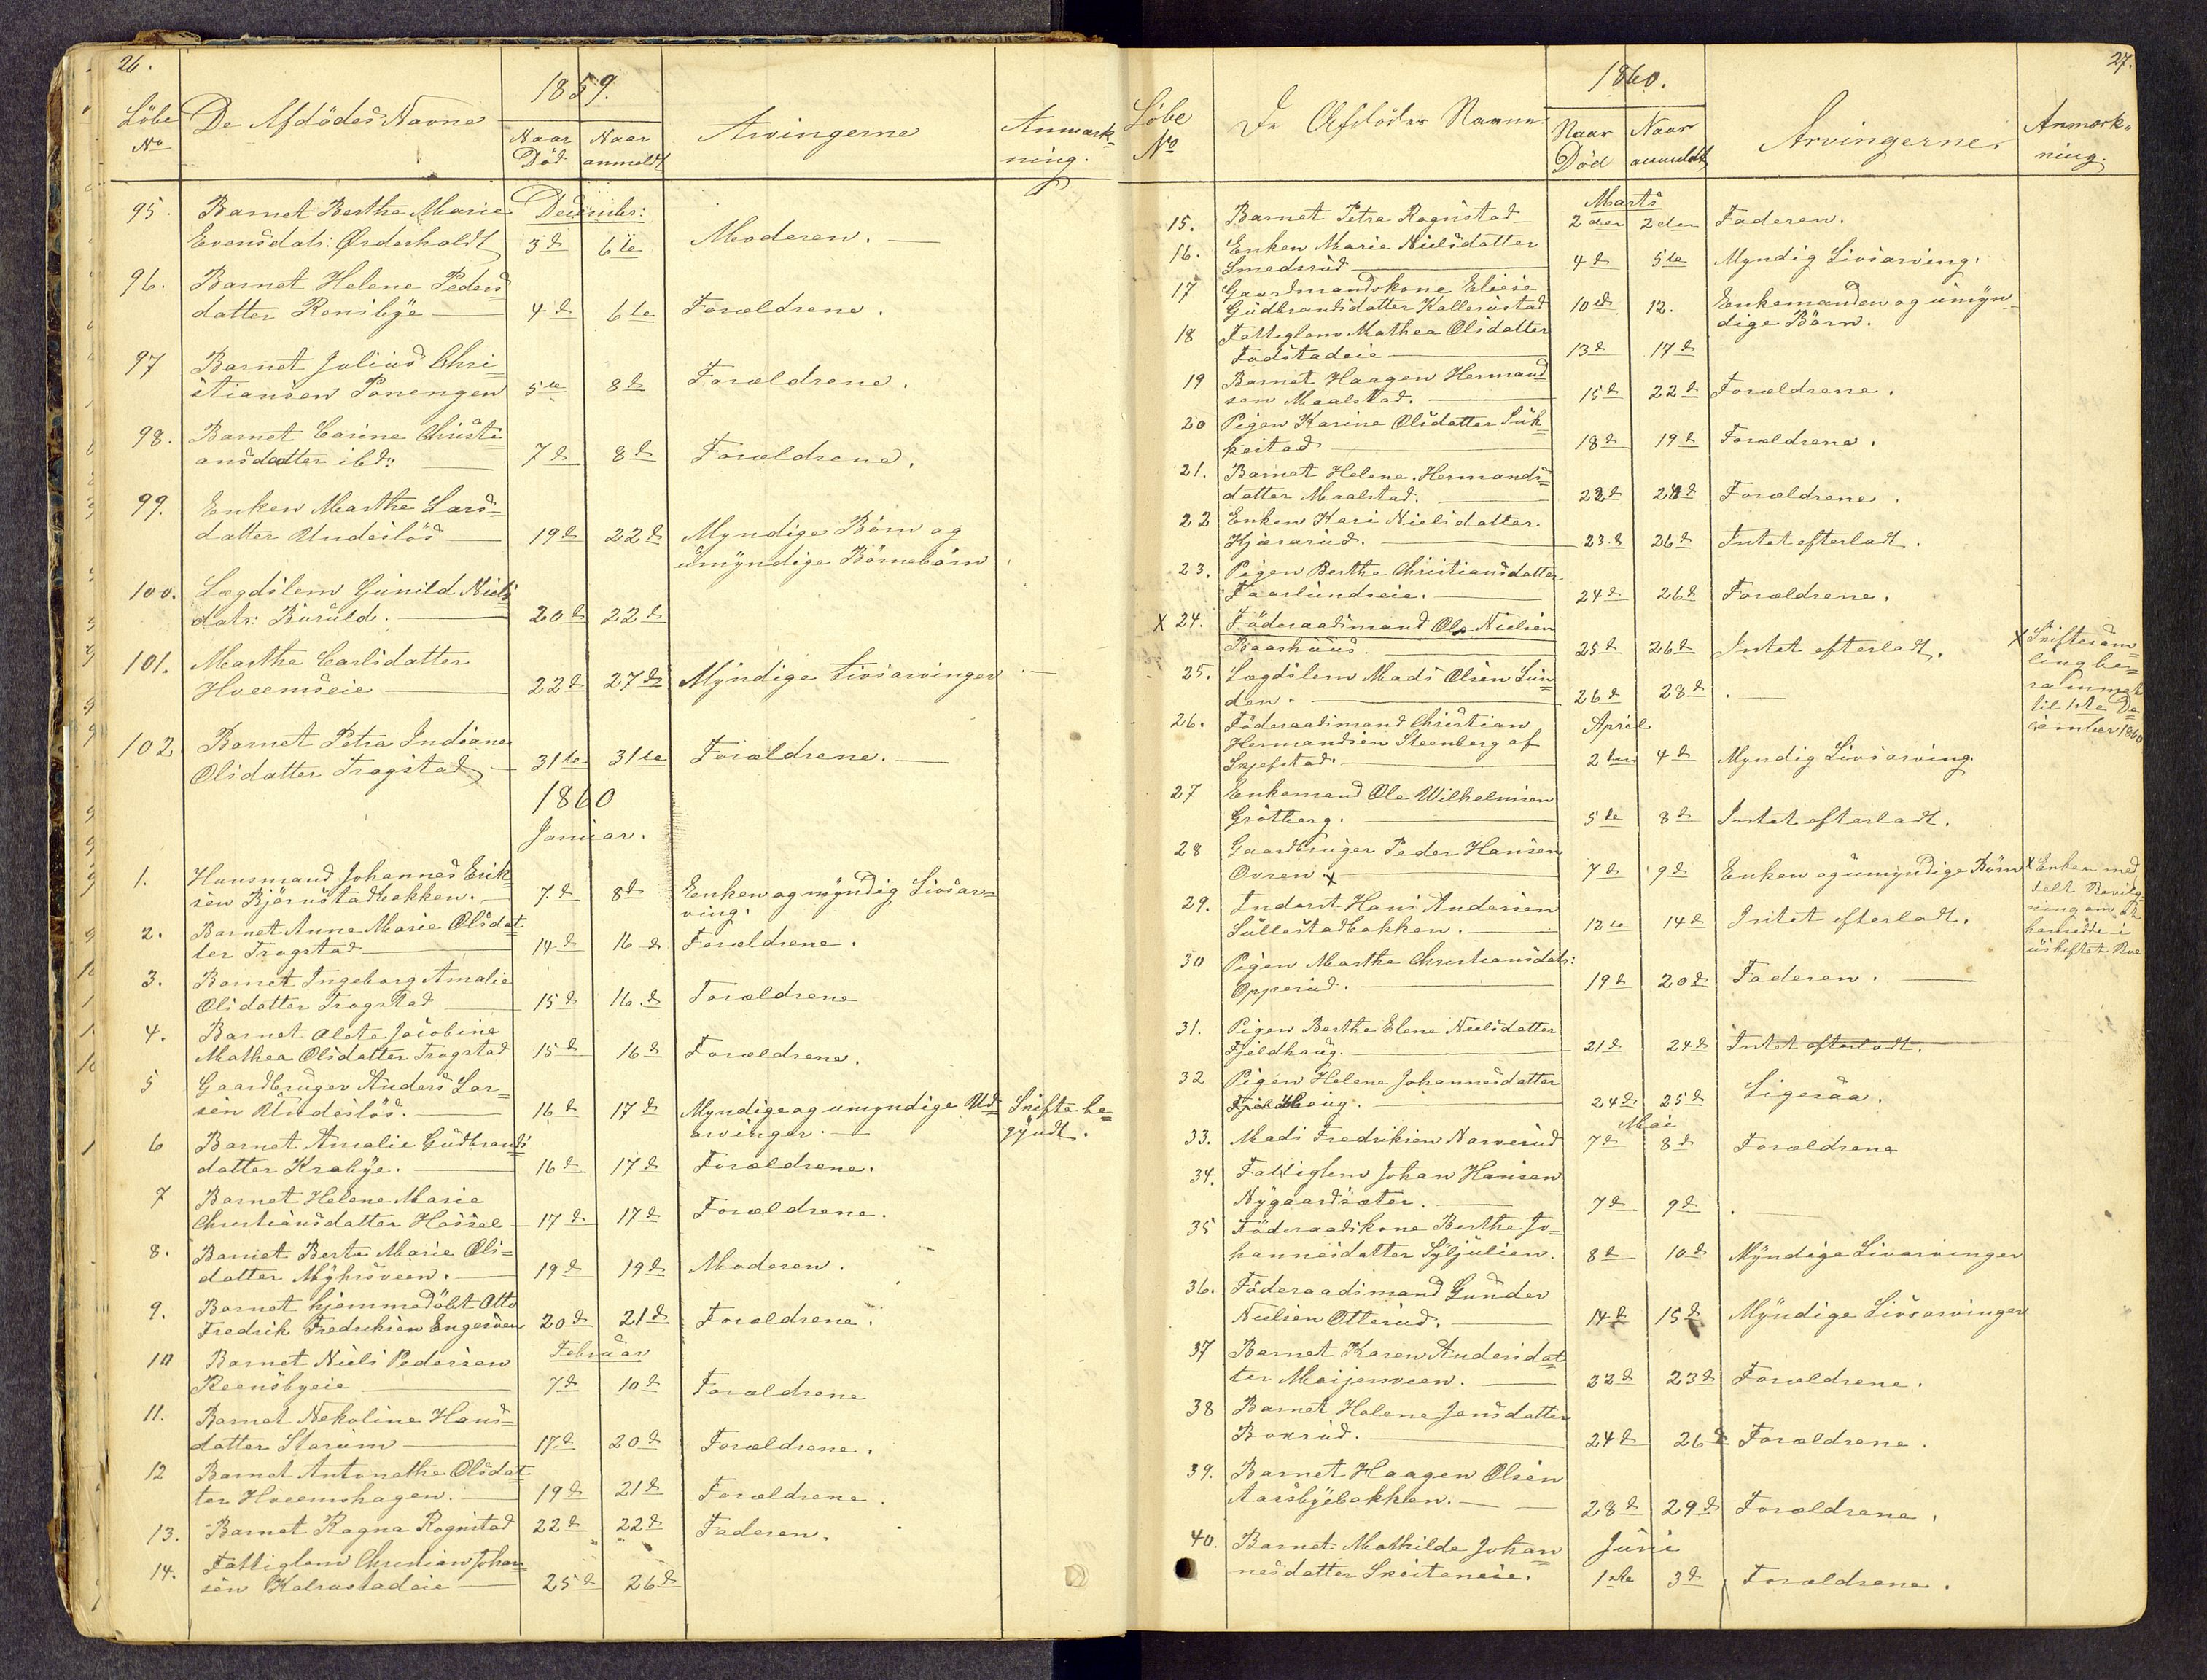 26.
Löbe No
De Afdödes Navne
1859.
Naar Död
Naar anmeldt
Arvingerne
Anmærk-
ning.
Decembr:
95. Barnet Berthe Marie
Evensdatr: Ørderholdt 3d 6te Moderen.
96. Barnet Helene Peders-
datter Rensbÿe 4d 6te Forældrene.
97 Barnet Julius Chri-
stiansen Ponengen 5te 8d Forældrene.
98. Barnet Carine Christi-
ansdatter ibd: 7d 8d Forældrene.
99. Enken Marthe Lars-
datter Undeslös 19d 22d Myndige Börn og
umÿndige Börnebörn
100. Lægdslem Gunild Niels-
datr: Buruld. 20d 22d
101. Marthe Carlsdatter
Hveemseie 22d 27d Mÿndige Livsarvinger
102 Barnet Petra Indiane
Olsdatter Trogstad 31te 31te Forældrene.
1860
Januar.
1. Huusmand Johannes Erik-
sen Bjørnstadbakken. 7.d 8d Enken og mÿndig Livsar-
ving.
2. Barnet Anne Marie Olsdat-
ter Trogstad 14d 16d Forældrene.
3. Barnet Ingeborg Amalie
Olsdatter Trogstad 15d 16.d Forældrene
4. Barnet Alete Jacobine
Mathea Olsdatter Trogstad 15d 16d Forældrene.
5 Gaardbruger Anders Lar-
sen Undeslös. 16d 17d Myndige og umyndige Ud- Skifte be-
arvinger. gÿndt.
6 Barnet Amalie Gudbrands-
datter Krabÿe. 16d 17d Forældrene.
7 Barnet Helene Marie
Christiansdatter Hassel 17d 17d Forældrene.
8. Barnet Berte Marie Ols-
datter Mÿhrsveen. 19d 19d Moderen.
9. Barnet hjemmedöbt Otto
Fredrik Fredriksen Engesveen 20d 21d Forældrene.
Februar
10 Barnet Niels Pedersen
Reensbyeie 7d 10d Forældrene
11. Barnet Nekoline Hans-
datter Starum 17d 20d Forældrene.
12 Barnet Antonethe Olsdat-
ter Hveemshagen. 19d 21d Forældrene.
13. Barnet Ragna Rognstad 22d 22d Faderen.
14. Fattiglem Christian Johan-
sen Kalrustadeie 25d 26d
27.
Löbe No
De Afdödes Navne
1860.
Naar Död
Naar anmeldt
Arvingerne
Anmærk-
ning.
Marts
15. Barnet Petra Rognstad 2den 2den Faderen.
16. Enken Marie Nielsdatter
Smedsrud 4d 5te Myndig Livsarving.
17 Gaardmandskone Eliese
Gudbrandsdatter Kallerustad 10d 12. Enkemanden og umÿn-
dige Börn.
18 Fattiglem Mathea Olsdatter
Fodstadeie 13d 17d
19 Barnet Haagen Hermand-
sen Maalstad. 15d 22d Forældrene.
20 Pigen Karine Olsdatter Suk-
kestad 18d 19d Forældrene.
21. Barnet Helene Hermands-
datter Maalstad. 22d 24d Forældrene.
22 Enken Kari Nielsdatter
Kjærarud. 23d 26d Intet efterladt.
23. Pigen Berthe Christiansdatter
Faarlundseie. 24d 26d Forældrene.
X 24. Föderaadsmand Ole Nielsen
Baashuus. 25d 26d Intet efterladt. X Skiftesam-
ling be-
rammet
til 1ste De-
cember 1860
25. Lægdslem Mads Olsen Lun-
den. 26d 28d
April
26. Föderaadsmand Christian
Hermandsen Steenberg af
Skjefstad. 2den 4d Myndig Livsarving.
27 Enkemand Ole Wilhelmsen
Grötberg. 5te 8d Intet efterladt.
28 Gaardbruger Peder Hansen
Ovren X 7d 9d Enken og umyndige Börn X Enken med
delt Bevilg-
ning om at
hensidde i
uskiftet Boe
29. Inderst Hans Andersen
Sullestadbakken. 12te 14d Intet efterladt.
30 Pigen Marthe Christiansdatr:
Opperud. 19d 20d Faderen.
31. Pigen Berthe Elene Nielsdatter
Fjeldhaug. 21d 24d Intet efterladt.
32 Pigen Helene Johannesdatter
Fjeldhaug. 24d 25d Ligesaa.
Mai
33. Mads Fredriksen Narverud 7d 8d Forældrene
34. Fattiglem Johan Hansen
Nÿgaardsæter. 7d 9d
35 Föderaadskone Berthe Jo-
hannesdatter Sÿljulien. 8d 10d Mÿndige Livarvinger
36. Föderaadsmand Gunder
Nielsen Otterud. 14d 15d Mÿndige Livsarvinger
37 Barnet Karen Andersdat-
ter Maijerveen. 22d 23d Forældrene.
38 Barnet Helene Jensdatter
Boxrud. 24d 26d Forældrene.
39. Barnet Haagen Olsen
Aasbÿebakken. 28d 29d Forældrene.
Juni
40. Barnet Mathilde Johan-
nesdatter Skeiteneie. 1ste 3d Forældrene.